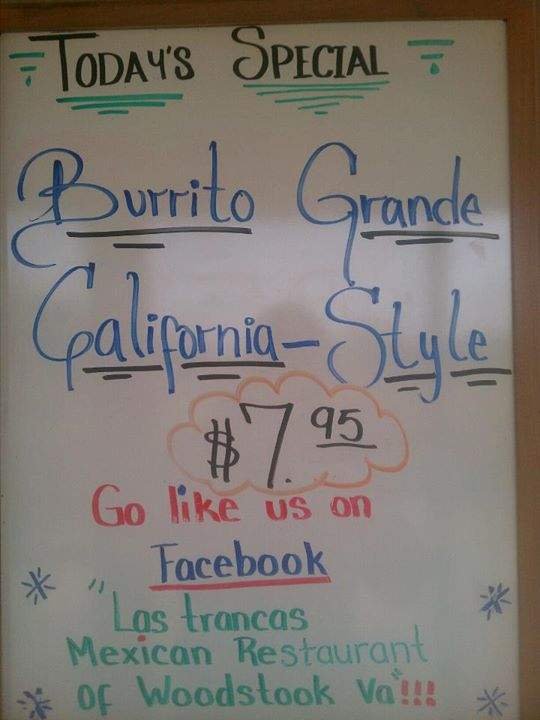 TODAY'S SPECIAL
Burrito Grande
California-Style
$7.95
Go like us on
Facebook
"Las trancas
Mexican Restaurant
of Woodstook Va"!!!